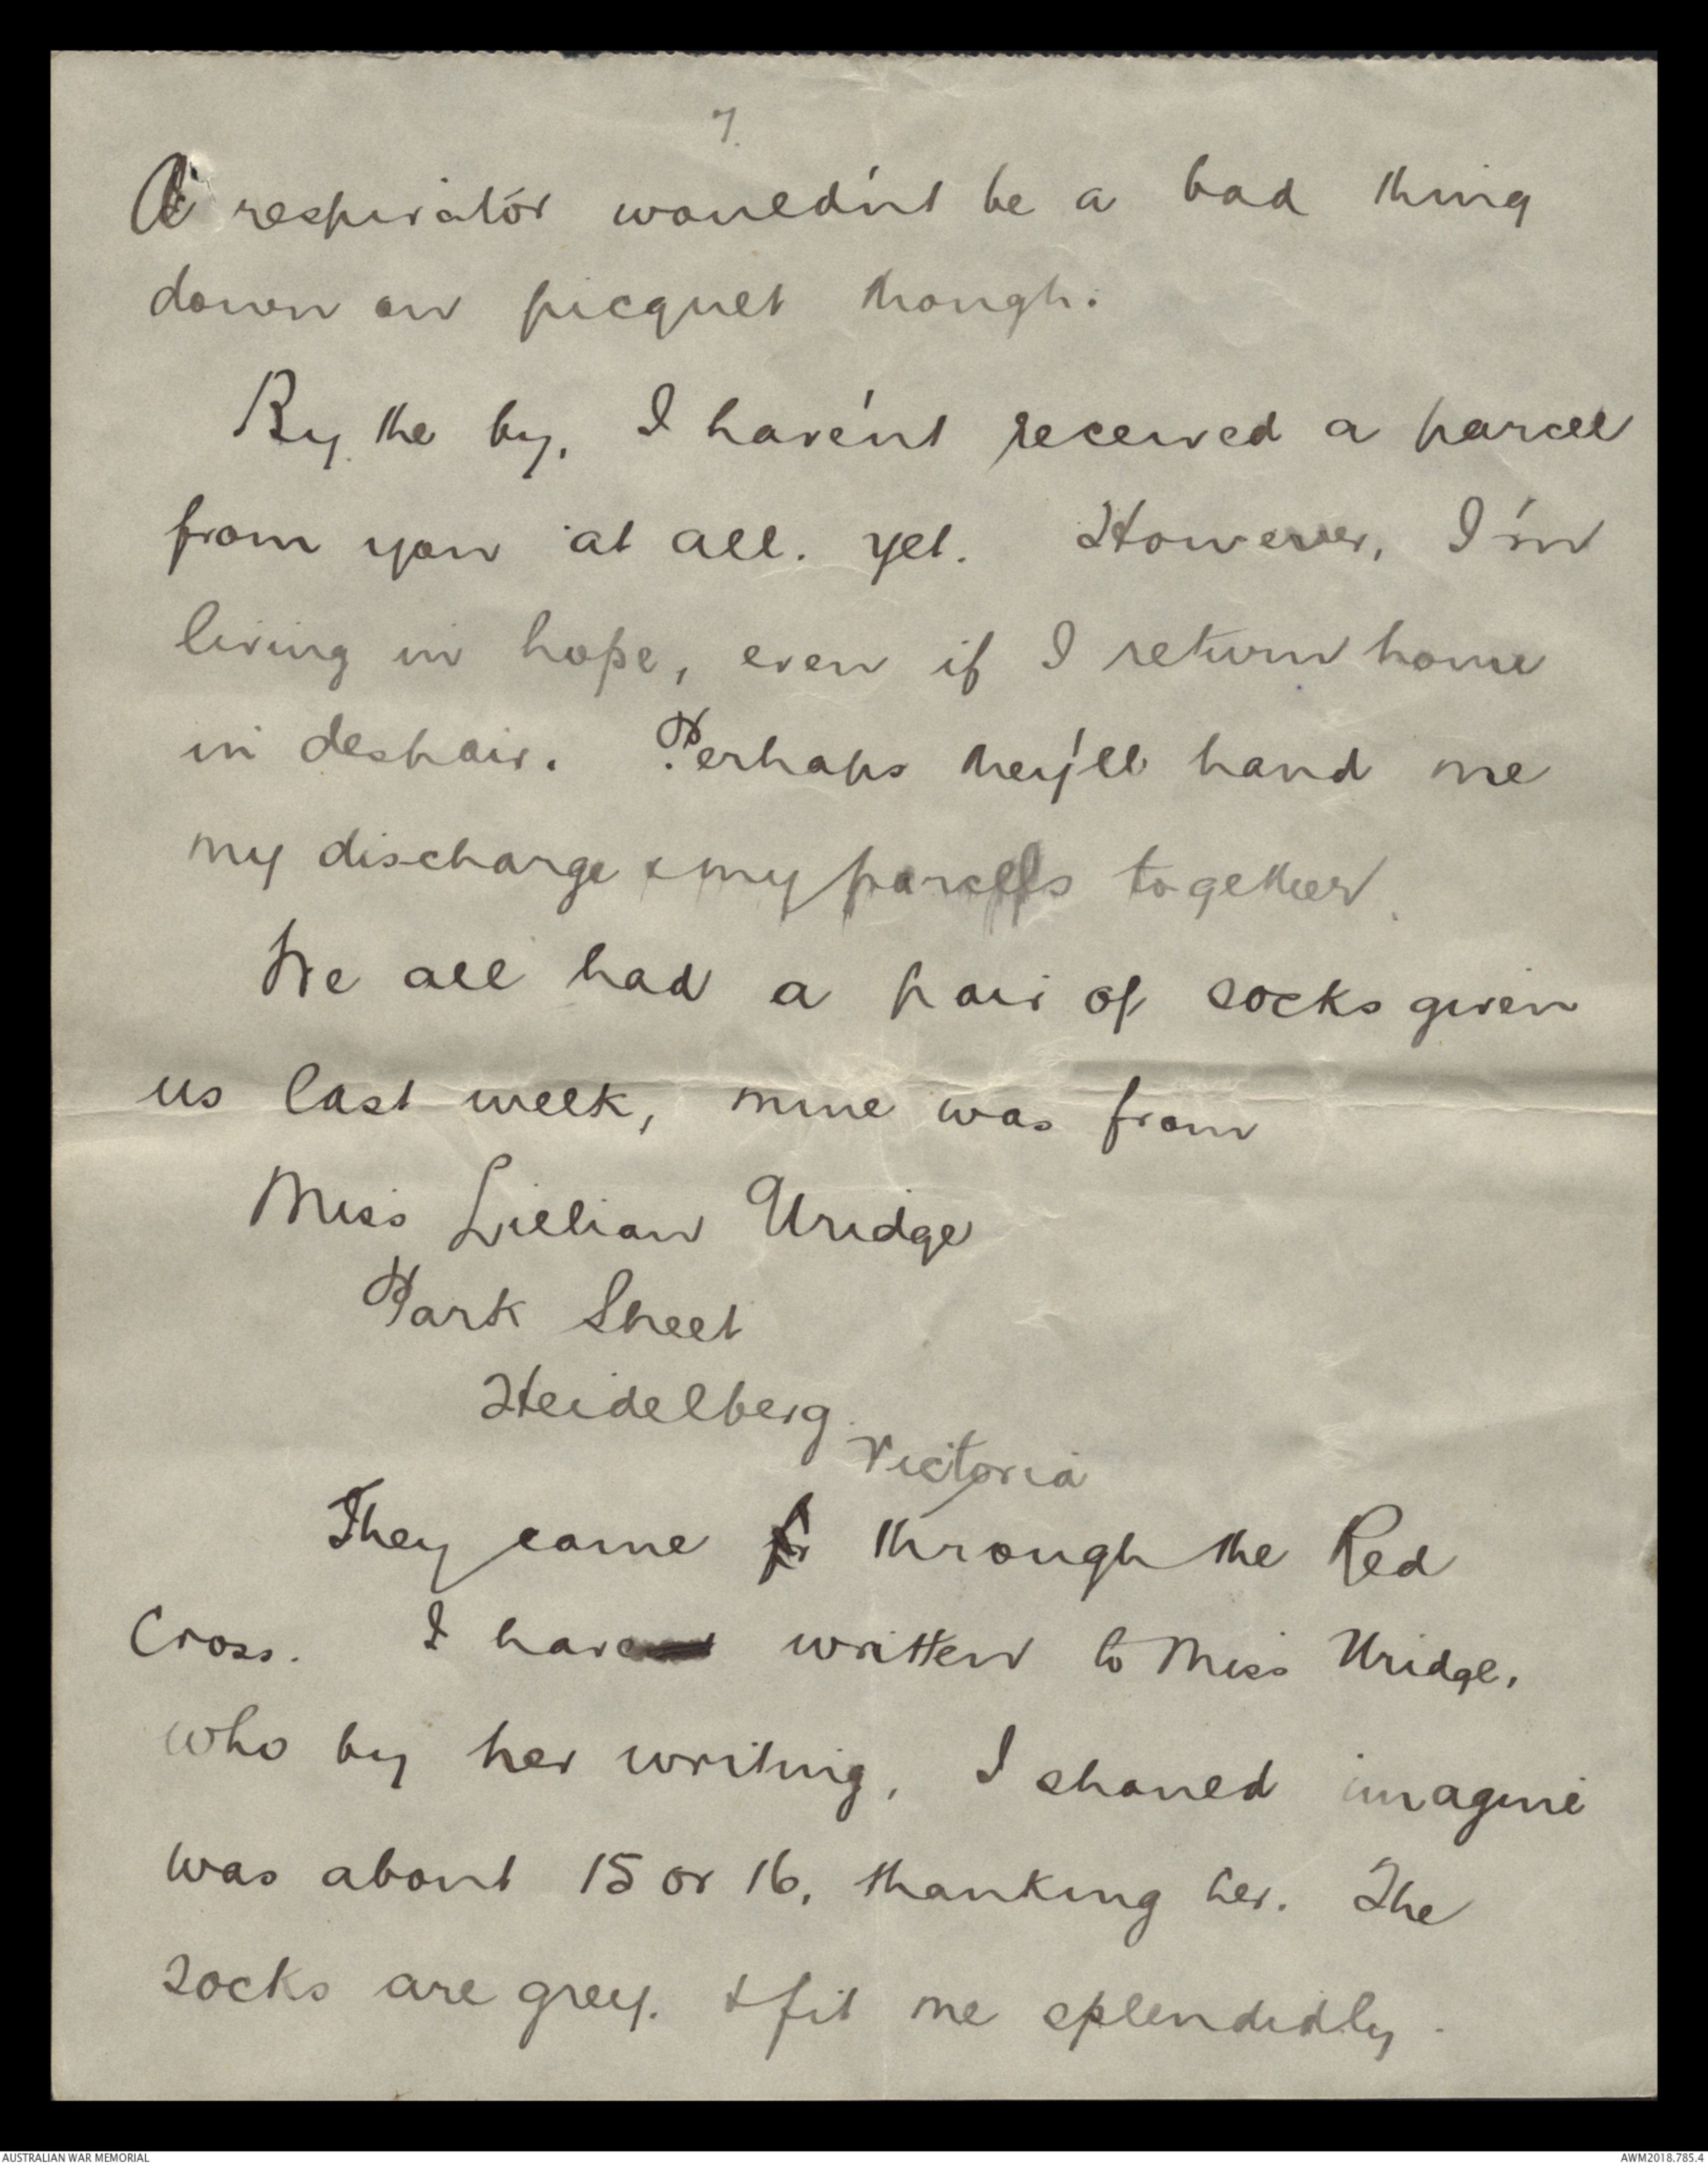 7.
A respirator wouldn't be a bad thing
down on picquet though.
By the by, I haven't received a parcel
from you at all. yet. However, I'm
living in hope, even if I return home
in despair. Perhaps they'll hand me
my discharge & my parcels together.
We all had a pair of socks given
us last week, mine was from
Miss Lillian Uridge
Park Street
Heidelberg.
Victoria
They came through the Red
Cross. I have written to Miss Uridge,
who by her writing, I should imagine
was about 15 or 16, thanking her. The
socks are grey. & fit me splendidly.
AUSTRALIAN WAR MEMORIAL
AWM2018.785.4